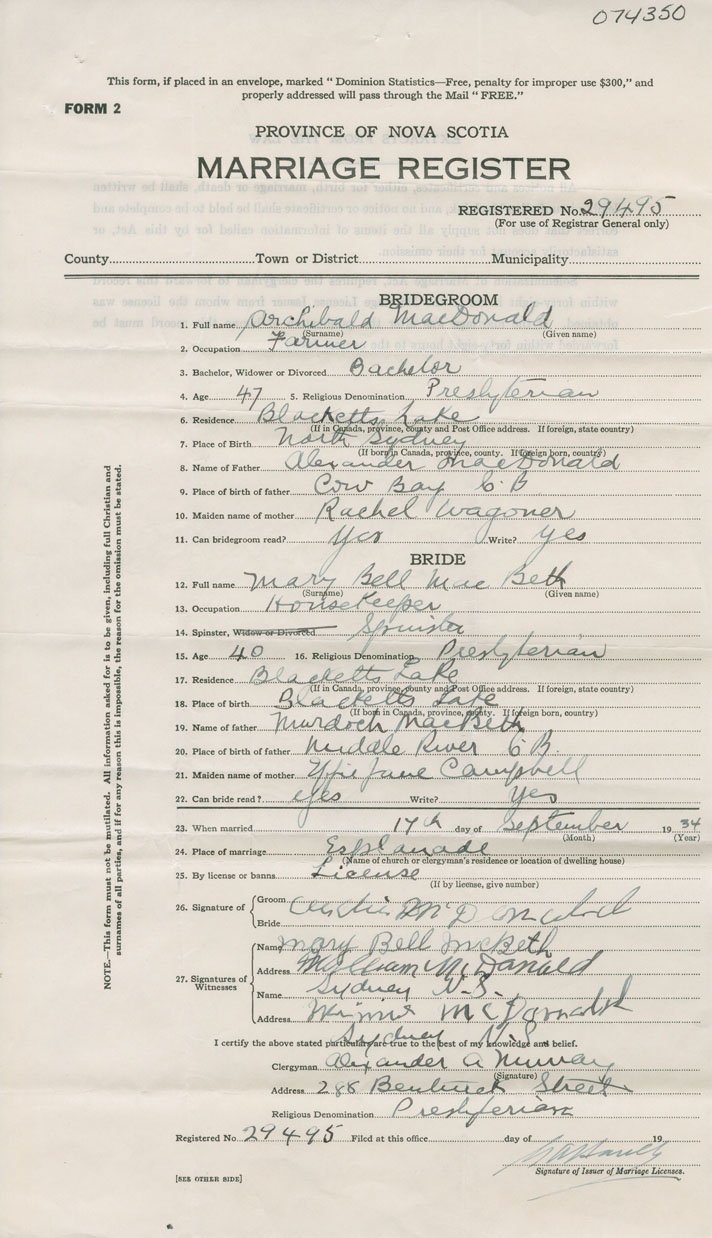 074350
This form, if placed in an envelope, marked " Dominion Statistics—Free, penalty for improper use $300," and
properly addressed will pass through the Mail " FREE."
FORM 2
PROVINCE OF NOVA SCOTIA
MARRIAGE REGISTER
REGISTERED No. 29495
(For use of Registrar General only)
County Town or District Municipality
BRIDEGROOM
1. Full name Archibald MacDonald
(Surname) (Given name)
2. Occupation Farmer
3. Bachelor, Widower or Divorced Bachelor
4. Age 47 5. Religious Denomination Presbyterian
6. Residence Blacketts Lake
(If in Canada, province, county and Post Office address. If foreign, state country)
7. Place of Birth North Sydney
(If born in Canada, province, county. If foreign born, country)
8. Name of Father Alexander MacDonald
9. Place of birth of father Cow Bay C B
10. Maiden name of mother Rachel Wagoner
11. Can bridegroom read? Yes Write? Yes
BRIDE
12. Full name Mary Bell Mac Beth
(Surname) (Given name)
13. Occupation HouseKeeper
14. Spinster, Widow or Divorced Spinster
15. Age 40 16. Religious Denomination Presbyterian
17. Residence Blacketts Lake
(If in Canada, province, county and Post Office address. If foreign, state country)
18. Place of birth Blacketts Lake
(If born in Canada, province, county. If foreign born, country)
19. Name of father Murdoch MacBeth
20. Place of birth of father Middle River C B
21. Maiden name of mother Effie Jane Campbell
22. Can bride read? Yes Write? Yes
23. When married 17th day of September 1934
(Month) (Year)
24. Place of marriage Esplanade
(Name of church or clergyman's residence or location of dwelling house)
25. By license or banns License
(If by license, give number)
26. Signature of Groom McDonald
Bride
Name Mary Bell McBeth
27. Signatures of Witnesses
Address William McDonald
Name Sydney N.S.
Address Minnie McDonald
Sydney N.S.
I certify the above stated particulars are true to the best of my knowledge and belief.
Clergyman Alexander A Murray
(Signature)
Address 288 Bentinck Street
Religious Denomination Presbyterian
Registered No. 29495 Filed at this office day of 19
Signature of Issuer of Marriage Licenses.
[SEE OTHER SIDE]
NOTE.—This form must not be mutilated. All information asked for is to be given, including full Christian and
surnames of all parties, and if for any reason this is impossible, the reason for the omission must be stated.